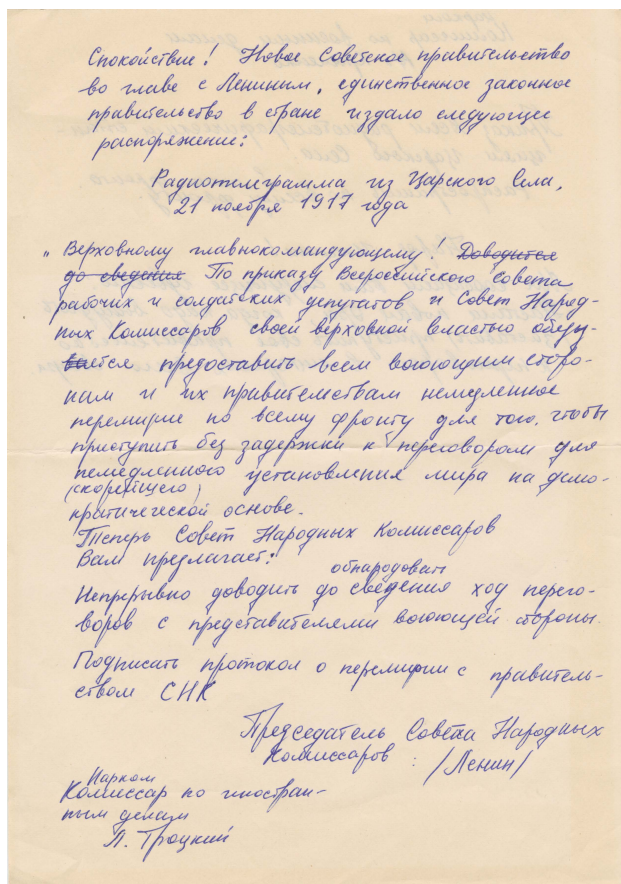 Спокойствие! Новое Советское правительство
во главе с Лениным, единственное законное
правительство в стране издало следующее
распоряжение:
Радиотелеграмма из Царского Села,
21 ноября 1917 года
„ Верховному главнокомандующему! Доводится
до сведения По приказу Всероссийского Совета
рабочих и солдатских депутатов и Совет Народ-
ных Комиссаров своей верховной властью обязу-
вается предоставить всем воюющим сторо-
нам и их правительствам немедленное
перемирие по всему фронту для того, чтобы
приступить без задержки к переговорам для
немедленного установления мира на демо-
(скорейшего)
кратической основе.
Теперь Совет Народных Комиссаров
Вам предлагает:
обнародовать
Непрерывно доводить до сведения ход перего-
воров с представителями воюющей стороны.
Подписать протокол о перемирии с правитель-
ством СНК
Председатель Совета Народных
Комиссаров : /Ленин/
Нарком
Комиссар по иностран-
ным делам
Л. Троцкий